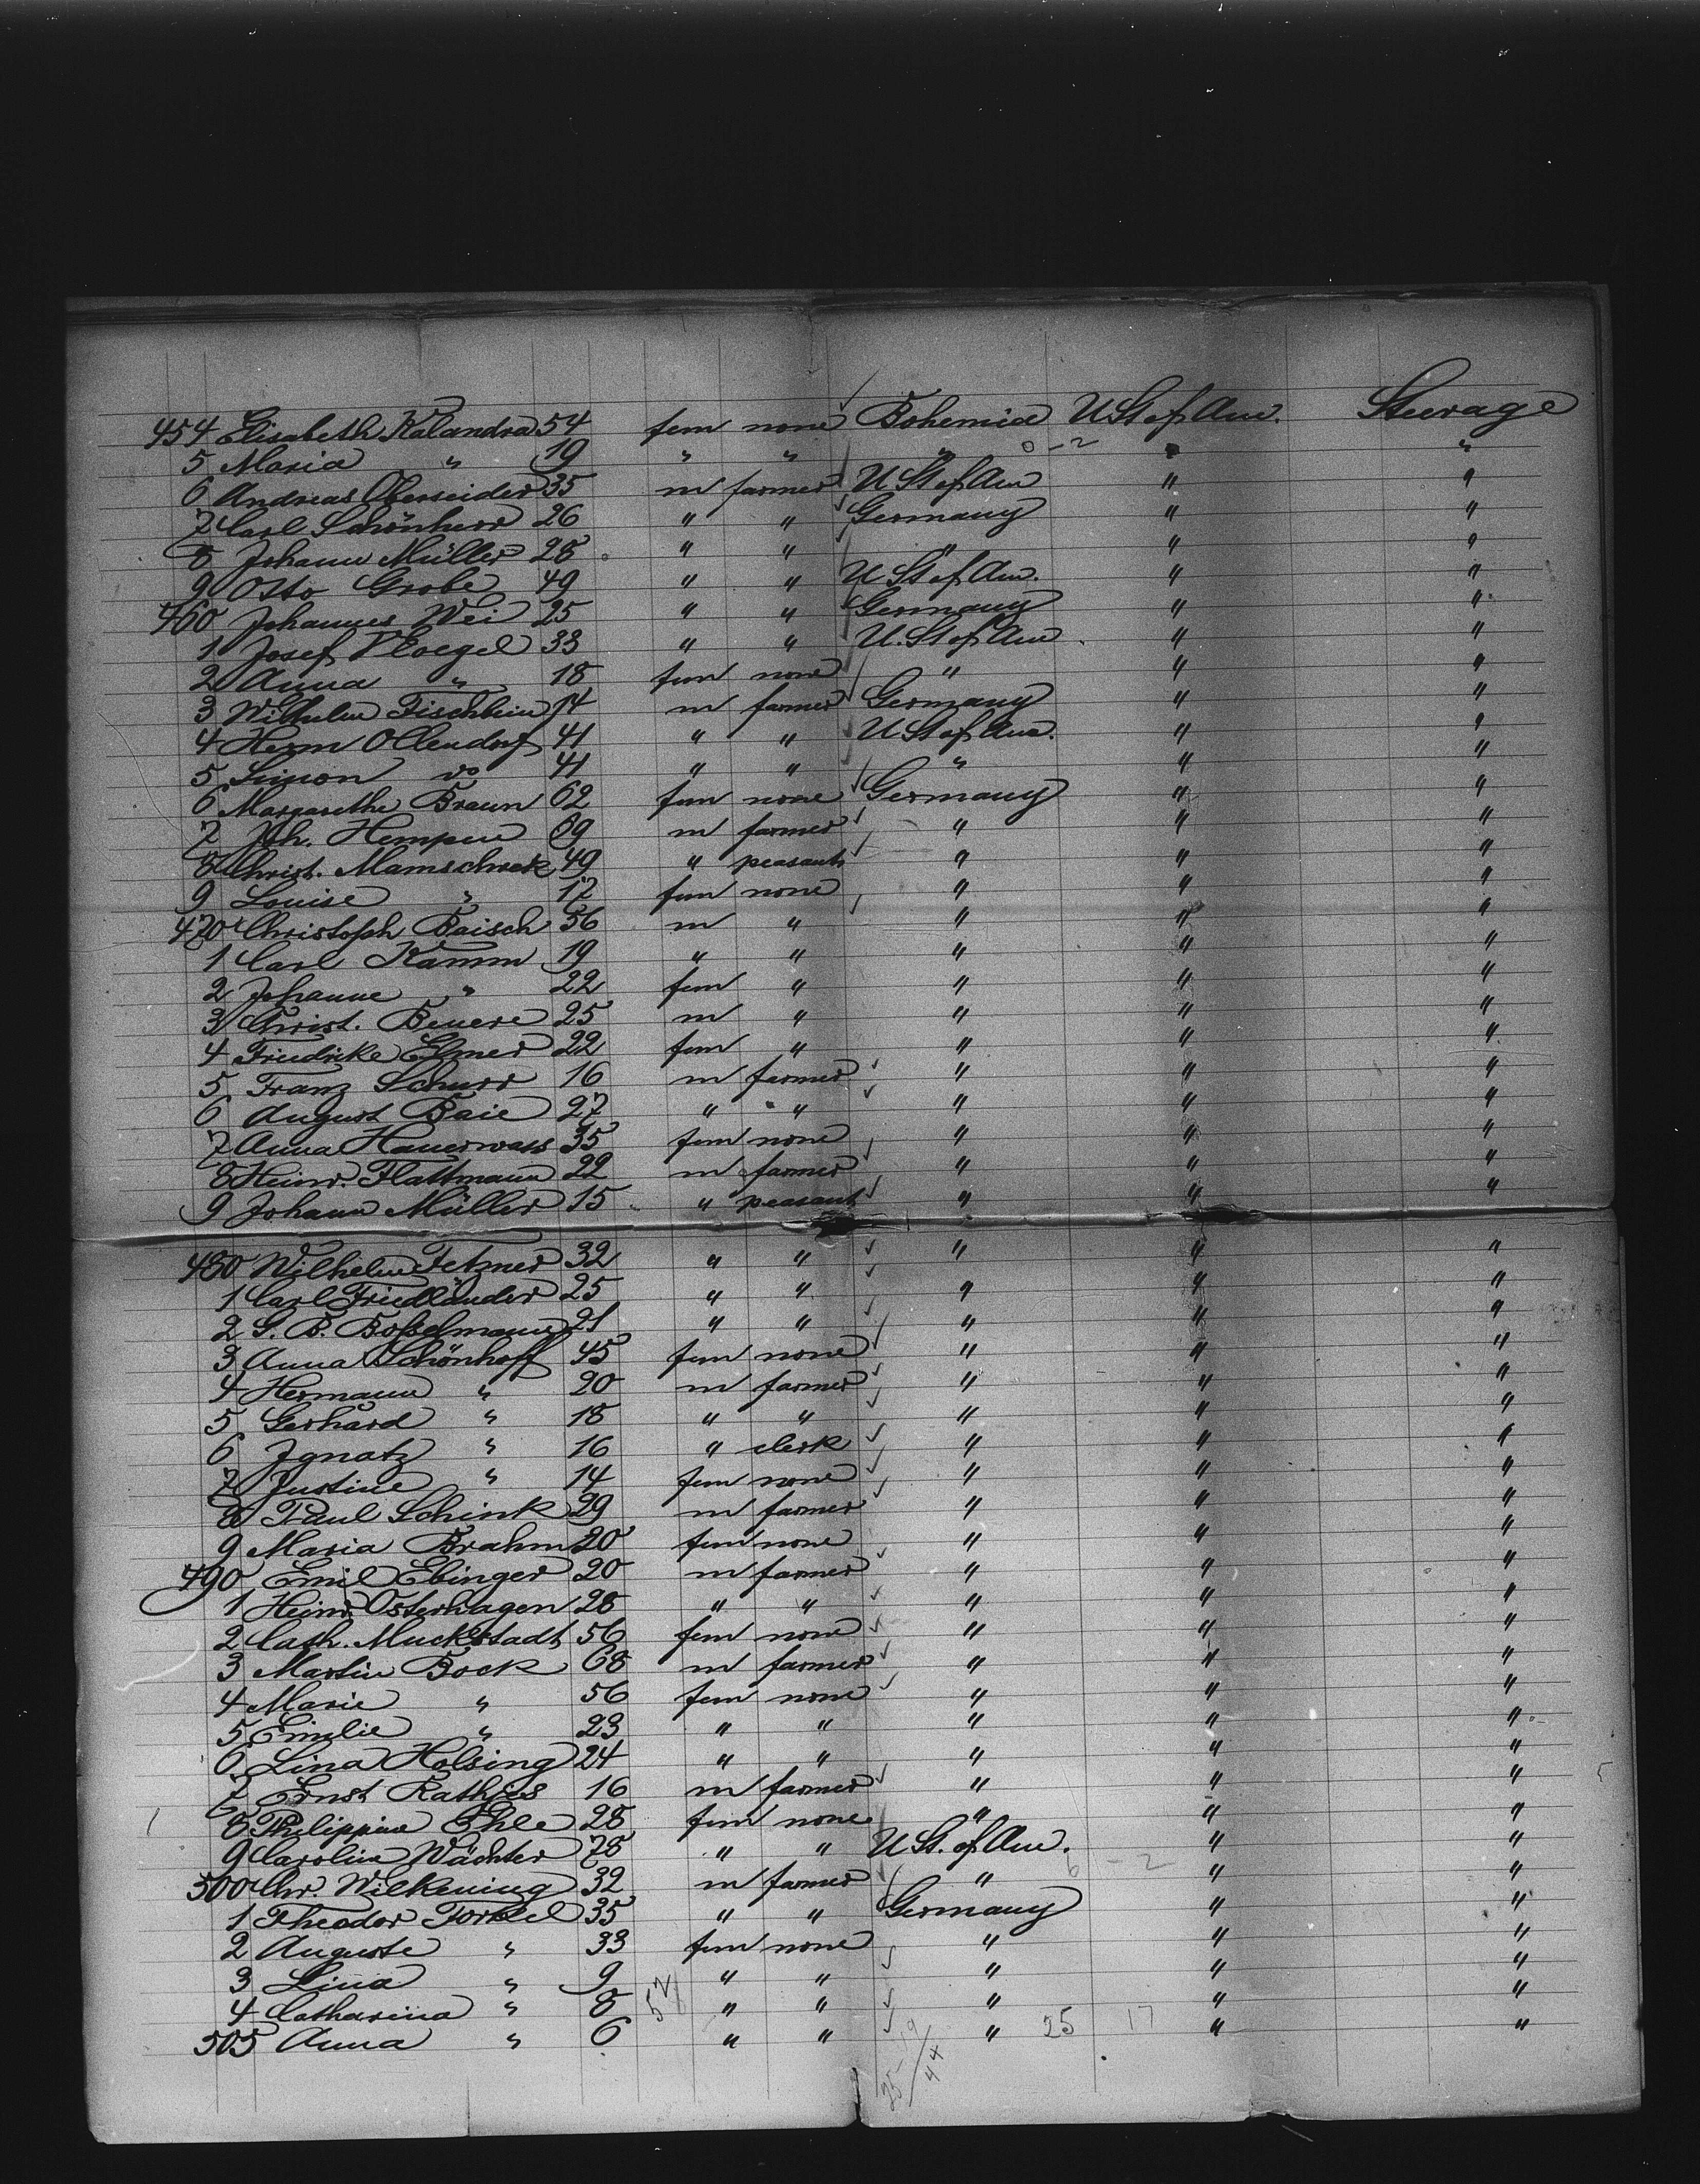 454 Elisabeth Kalandra 54 fem none Bohemia U St of Am. Steerage
5 Maria " 19 " " " 0-2 " "
6 Andreas Oberseider 35 m farmer U St of Am " "
7 Carl Schönherr 26 " " Germany " "
8 Johann Müller 28 " " " " "
9 Otto Grobe 49 " " U St of Am. " "
460 Johannes Wei 25 " " Germany " "
1 Josef Vloegel 33 " " U. St of Am " "
2 Anna " 18 fem none " " "
3 Wilhelm Fischbein 14 m farmer Germany " "
4 Herm Ollendorf 41 " " U St of Am. " "
5 Simon do 41 " " " " "
6 Margarethe Braun 62 fem none Germany " "
7 Joh. Hempen 69 m farmer " " "
8 Christ. Mamschreck 49 " peasant " " "
9 Louise " 17 fem none " " "
470 Christoph Baisch 56 m " " " "
1 Carl Kamm 19 " " " " "
2 Johanne " 22 fem " " " "
3 Christ. Beuere 25 m " " " "
4 Friedrike Elmer 22 fem " " " "
5 Franz Schurr 16 m farmer " " "
6 August Baie 27 " " " " "
7 Anna Hauerwass 35 fem none " " "
8 Heinr. Flattmann 22 m farmer " " "
9 Johann Müller 15 " peasant " " "
480 Wilhelm Fetzner 32 " " " " "
1 Carl Friedländer 25 " " " " "
2 G. B. Boßelmann 21 " " " " "
3 Anna Schönhoff 45 fem none " " "
4 Hermann " 20 m farmer " " "
5 Gerhard " 18 " " " " "
6 Ignatz " 16 " clerk " " "
7 Justine " 14 fem none " " "
8 Paul Schink 29 m farmer " " "
9 Maria Brahm 20 fem none " " "
490 Emil Ebinger 20 m farmer " " "
1 Heinr. Osterhagen 28 " " " " "
2 Cath. Muckstadt 56 fem none " " "
3 Martin Bock 68 m farmer " " "
4 Marie " 56 fem none " " "
5 Emilie " 23 " " " " "
6 Lina Holsing 24 " " " " "
7 Ernst Rathjes 16 m farmer " " "
8 Philippine Ehle 28 fem none " " "
9 Caroline Wächter 78 " " U St. of Am. " "
500 Chr. Wilkening 32 m farmer " 6-2 " "
1 Theodor Forkel 35 " " Germany " "
2 Auguste " 33 fem none " " "
3 Lina " 9 " " " " "
4 Catharina " 8 52 " " " " "
505 Anna " 6 " " " 25 17 " "
25 19
44